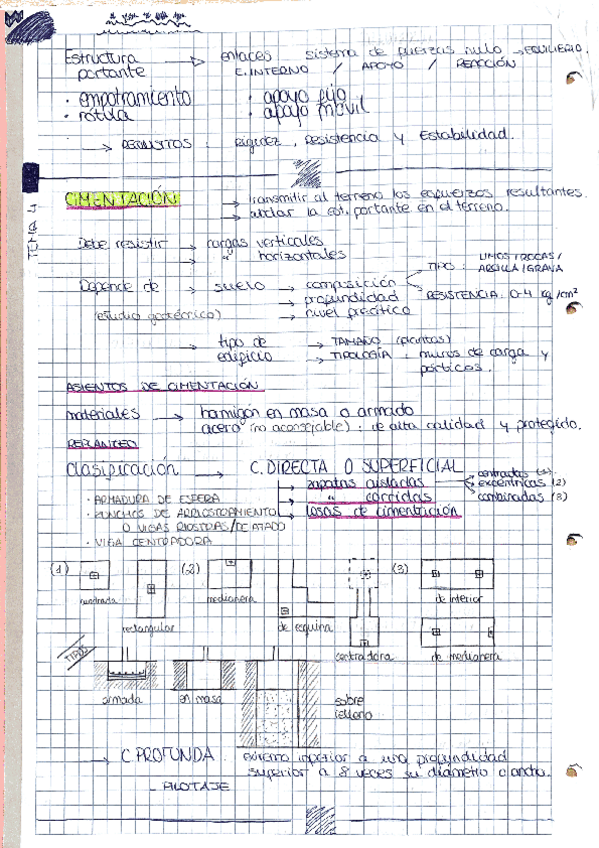 Estructura portante → enlaces sistema de fuerzas nulo → EQUILIBRIO.
E. INTERNO / APOYO / REACCIÓN
· empotramiento · apoyo fijo
· rótula · apoyo móvil
→ REQUISITOS : Rigidez, Resistencia y Estabilidad.
TEMA 4
CIMENTACIÓN: → transmitir al terreno los esfuerzos resultantes.
→ anclar la est. portante en el terreno.
Debe resistir → cargas verticales
→ " horizontales
Depende de → suelo → composición TIPO : LIMOS / ROCAS / ARCILLA / GRAVA
(estudio geotécnico) → profundidad RESISTENCIA: 0-4 kg/cm²
→ nivel freático
→ tipo de edificio → TAMAÑO (plantas)
→ TIPOLOGÍA : muros de carga y pórticos.
ASIENTOS DE CIMENTACIÓN
materiales → hormigón en masa o armado
acero (no aconsejable) : de alta calidad y protegido.
REPLANTEO
Clasificación → C. DIRECTA O SUPERFICIAL
→ zapatas aisladas → centradas (1)
→ excéntricas (2)
→ combinadas (3)
→ " corridas
→ losas de cimentación
· ARMADURA DE ESPERA
· ZUNCHOS DE ARRIOSTRAMIENTO
O VIGAS RIOSTRAS/DE ATADO
· VIGA CENTRADORA
(1) (2) (3)
cuadrada medianera de interior
rectangular de esquina centradora de medianera
TIPOS
armada en masa sobre relleno
→ C. PROFUNDA : extremo inferior a una profundidad
superior a 8 veces su diámetro o ancho.
- PILOTAJE